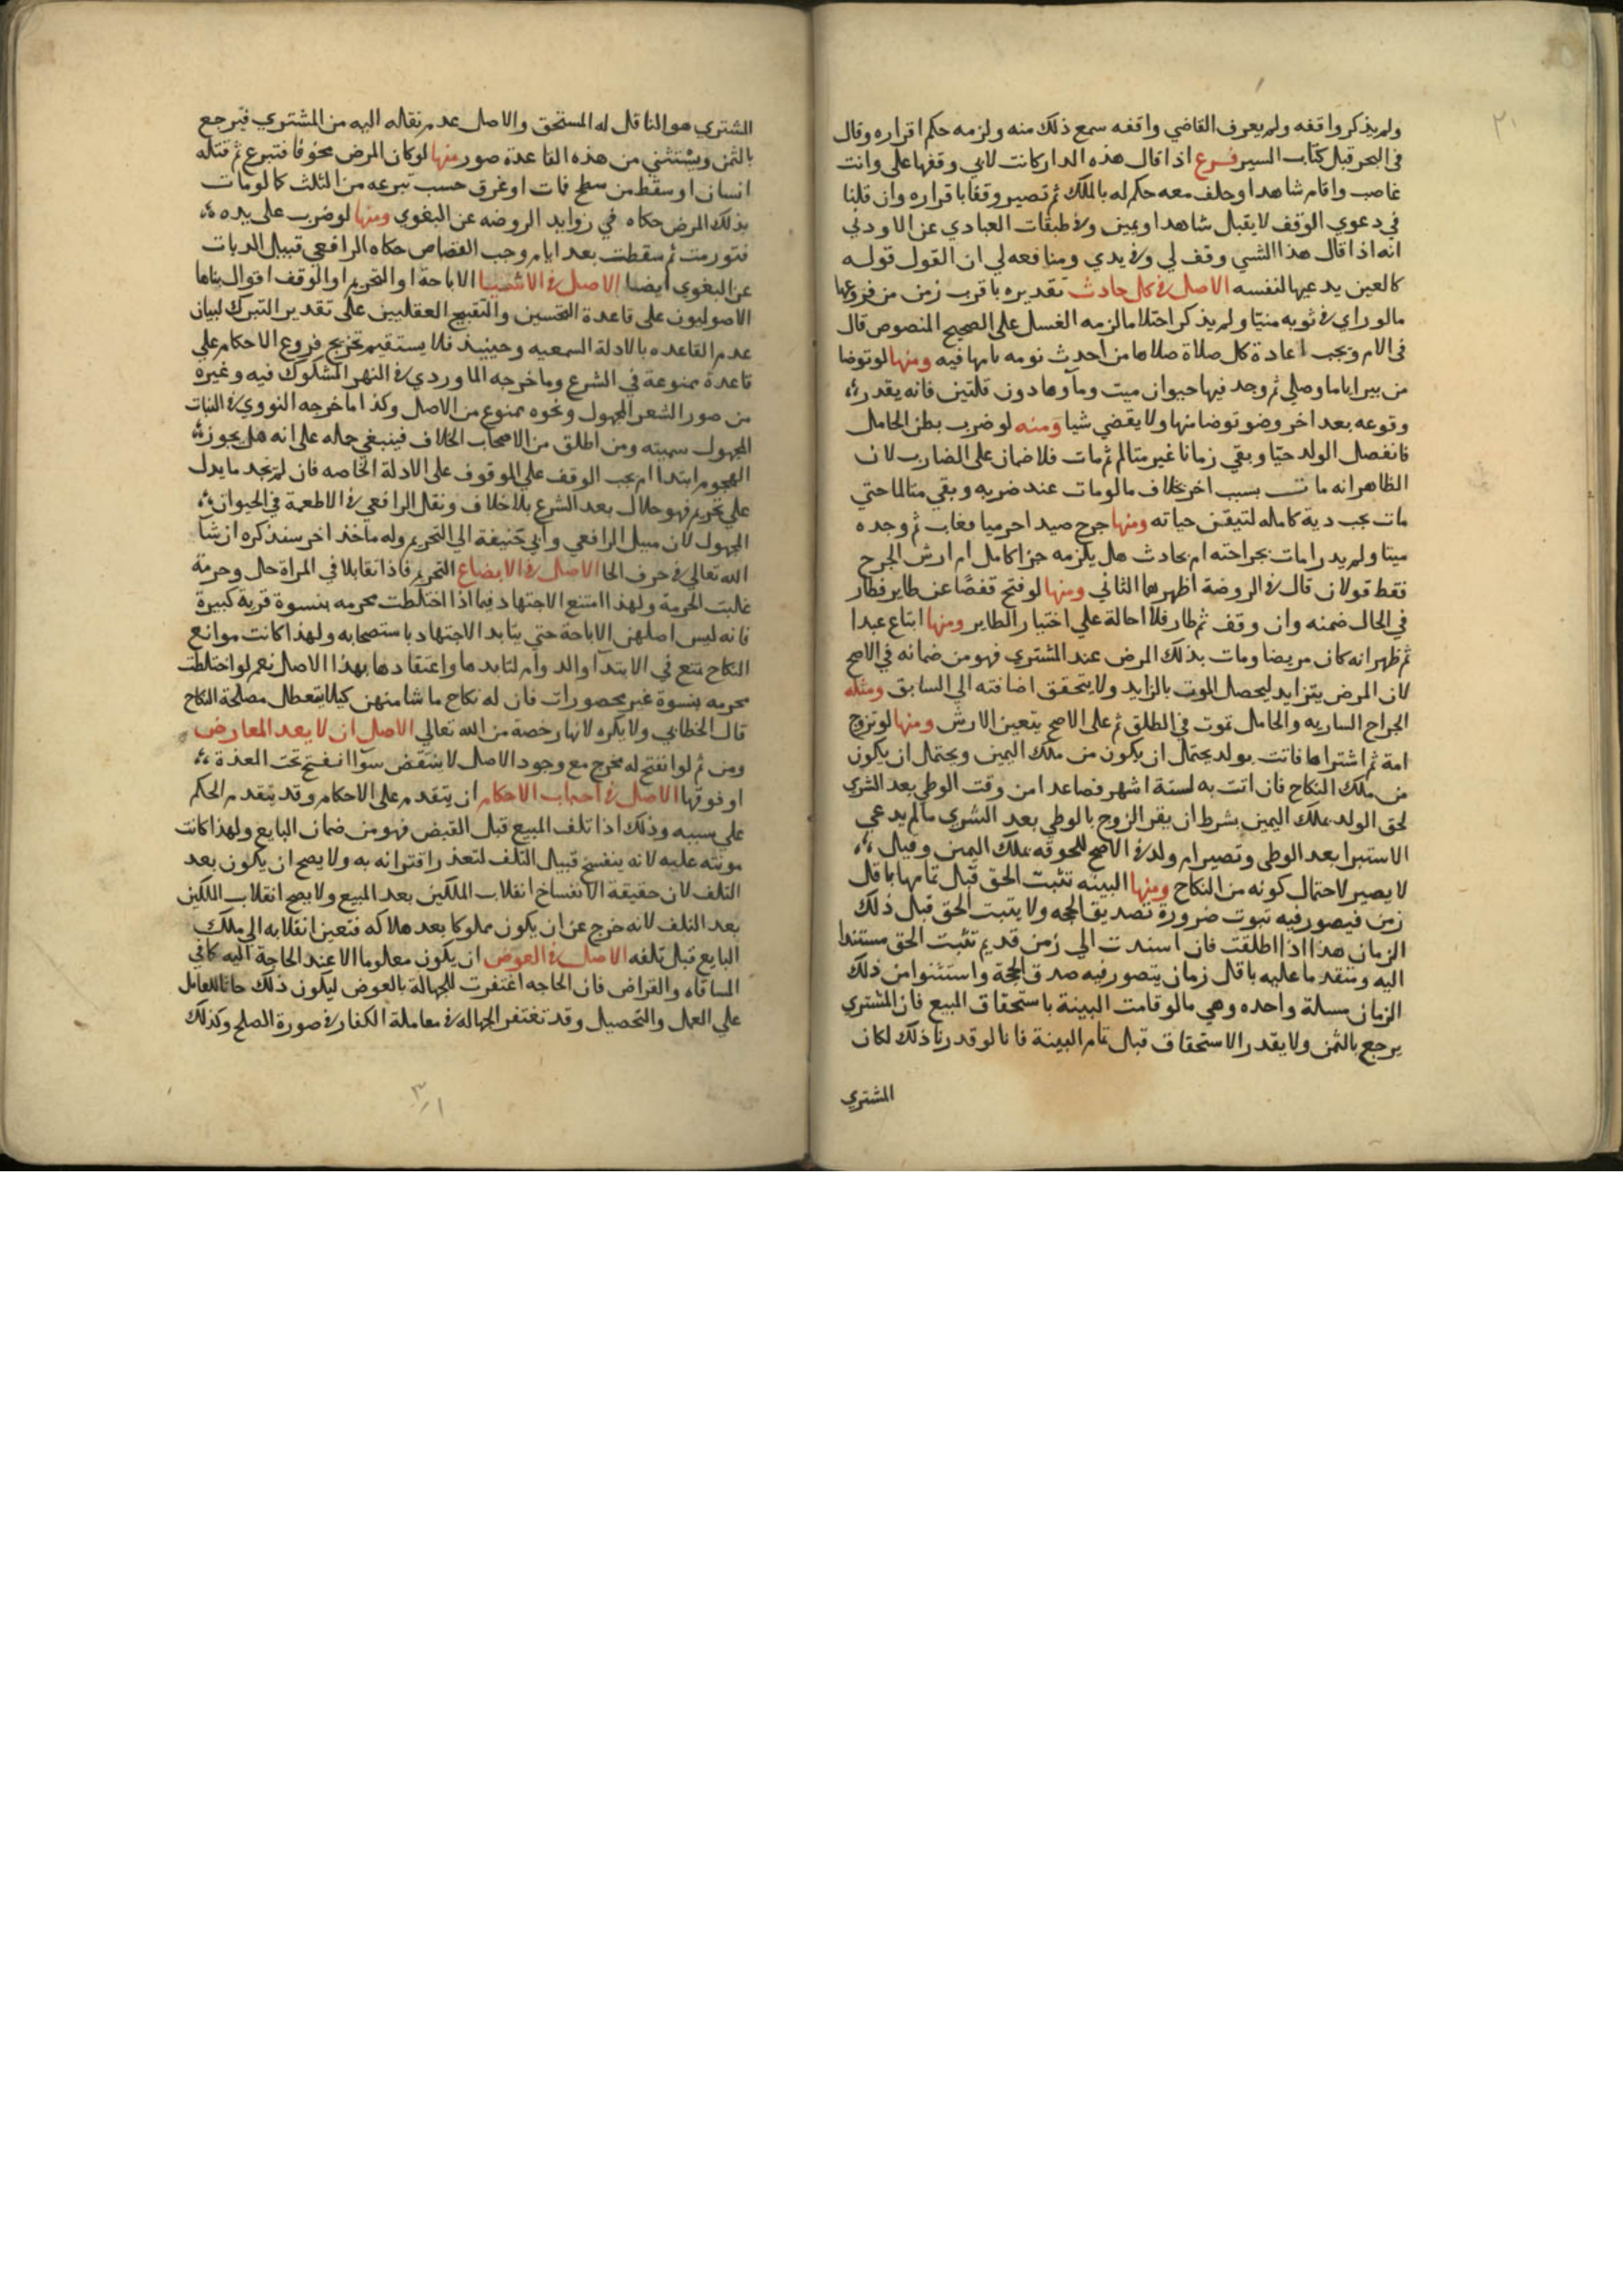 ولم يذكر واقفه ولم يعرف القاضي واقفه سمع ذلك منه ولزمه حكم اقراره وقال
في البحر قبل كتاب السير فرع اذا قال هذه الدار كانت لابي وقفها على وانت
غاصب واقام شاهدا وحلف معه حكم له بالملك ثم تصير وقفا باقراره وان قلنا
في دعوي الوقف لا يقبل شاهدا ويمين وفي طبقات العبادي عن الاودني
انه اذا قال هذا الشي وقف لي وفي يدي ومنافعه لي ان القول قوله
كالعين يدعيها لنفسه الاصل في كل حادث تقديره باقرب زمن من فروعها
مالو راي في ثوبه منيا ولم يذكر احتلاما لزمه الغسل على الصحيح المنصوص قال
في الام ويجب اعادة كل صلاة صلاها من احدث نومه نامها فيه ومنها لو توضا
من بير اياما وصلي ثم وجد فيها حيوان ميت وماوها دون قلتين فانه يقدر
وقوعه بعد اخر وضو توضا منها ولا يقضي شيا ومنه لو ضرب بطن الحامل
فانفصل الولد حيا وبقي زمانا غير متالم ثم مات فلا ضمان على الضارب لان
الظاهر انه مات بسبب اخر بخلاف مالو مات عند ضربه وبقي متالما حتي
مات يجب دية كامله لتيقن حياته ومنها جرح صيد احرميا فغاب ثم وجده
ميتا ولم يدر امات بجراحته ام بحادث هل يلزمه جزا كامل ام ارش الجرح
فقط قولان قال في الروضة اظهرهما الثاني ومنها لو فتح قفصا عن طاير فطار
في الحال ضمنه وان وقف ثم طار فلا احالة علي اختيار الطاير ومنها ابتاع عبدا
ثم ظهر انه كان مريضا ومات بذلك المرض عند المشتري فهو من ضمانه في الاصح
لان المرض يتزايد ليحصل الموت بالزايد ولا يتحقق اضافته الي السابق ومثله
الجراح الساريه والحامل تموت في الطلق ثم على الاصح يتعين الارش ومنها لو تزوج
امة ثم اشتراها فاتت بولد يحتمل ان يكون من ملك اليمين ويحتمل ان يكون
من ملك النكاح فان اتت به لستة اشهر فصاعدا من وقت الوطي بعد الشري
لحق الولد بملك اليمين بشرط ان يقر الزوج بالوطي بعد الشري مالم يدعي
الاستبرا بعد الوطي وتصير ام ولد في الاصح للحوقه بملك اليمين وقيل
لا يصير لاحتمال كونه من النكاح ومنها البينه تثبت الحق قبل تمامها باقل
زمن فيصور فيه ثبوت ضرورة تصديق الحجه ولا يثبت الحق قبل ذلك
الزمان هذا اذا اطلقت فان اسندت الي زمن قديم تثبت الحق مستندا
اليه ومتقدما عليه باقل زمان يتصور فيه صدق الحجة واستثنوا من ذلك
الزمان مسلة واحده وهي مالو قامت البينة باستحقاق المبيع فان المشتري
يرجع بالثمن ولا يقدر الاستحقاق قبل تمام البينة فانا لو قدرنا ذلك لكان
المشتري
المشتري هو الناقل له المستحق والاصل عدم نقاله اليه من المشتري فيرجع
بالثمن ويستثني من هذه القاعدة صور منها لو كان المرض مخوفا فتبرع ثم قتله
انسان او سقط من سطح فمات او غرق حسب تبرعه من الثلث كالو مات
بذلك المرض حكاه في زوايد الروضه عن البغوي ومنها لو ضرب على يده
فتورمت ثم سقطت بعد ايام وجب القصاص حكاه الرافعي قبيل الديات
عن البغوي ايضا الاصل في الاشيا الاباحة او التحريم او الوقف اقوال بناها
الاصوليون على قاعدة التحسين والتقبيح العقليين على تقدير التبرك لبيان
عدم القاعده بالادلة السمعيه وحينيذ فلا يستقيم تخريج فروع الاحكام علي
قاعدة ممنوعة في الشرع وما خرجه الماوردي في النهر المشكوك فيه وغيره
من صور الشعر المجهول ونحوه ممنوع من الاصل وكذا ما خرجه النووي في النبات
المجهول سميته ومن اطلق من الاصحاب الخلاف فينبغي حمله على انه هل يجوز
الهجوم ابتدا ام يجب الوقف علي الموقوف على الادلة الخاصه فان لم نجد ما يدل
علي تحريم فهو حلال بعد الشرع بلا خلاف ونقل الرافعي في الاطعمة في الحيوان
المجهول لان مبيل الرافعي وابي حنيفة الي التحريم وله ماخذ اخر سنذكره ان شا
الله تعالي في حرف الحا الاصل في الابضاع التحريم فاذا تقابلا في المراة حل وحرمة
غلبت الحرمة ولهذا امتنع الاجتهاد فيما اذا اختلطت محرمه بنسوة قرية كبيرة
فانه ليس اصلهن الاباحة حتي يتايد الاجتهاد باستصحابه ولهذا كانت موانع
النكاح تمنع في الابتدا والدوام لتابدها واعتقادها بهذا الاصل نعم لو اختلطت
محرمه بنسوة غير محصورات فان له نكاح ما شا منهن كيلا يتعطل مصلحة النكاح
قال الخطابي ولا يكره لانها رخصة من الله تعالي الاصل ان لا يعد المعارض
ومن ثم لو انفتح له مخرج مع وجود الاصل لا ينتقض سوا انفتح تحت المعدة
او فوقها الاصل في اسباب الاحكام ان يتقدم على الاحكام وقد يتقدم الحكم
علي سببه وذلك اذا تلف المبيع قبل القبض فهو من ضمان البايع ولهذا كانت
مونته عليه لانه ينفسخ قبيل التلف لتعذر اقترانه به ولا يصح ان يكون بعد
التلف لان حقيقة الانفساخ انقلاب الملكين بعد المبيع ولا يصح انقلاب الملكين
بعد التلف لانه خرج عن ان يكون مملوكا بعد هلاكه فتعين انقلابه الي ملك
البايع قبل تلفه الاصل في العوض ان يكون معلوما الا عند الحاجة اليه كما في
المساقاه والقراض فان الحاجه اغتفرت للجهالة بالعوض ليكون ذلك حاثا للعامل
علي العمل والتحصيل وقد تغتفر الجهاله في معاملة الكفار في صورة الصلح وكذلك